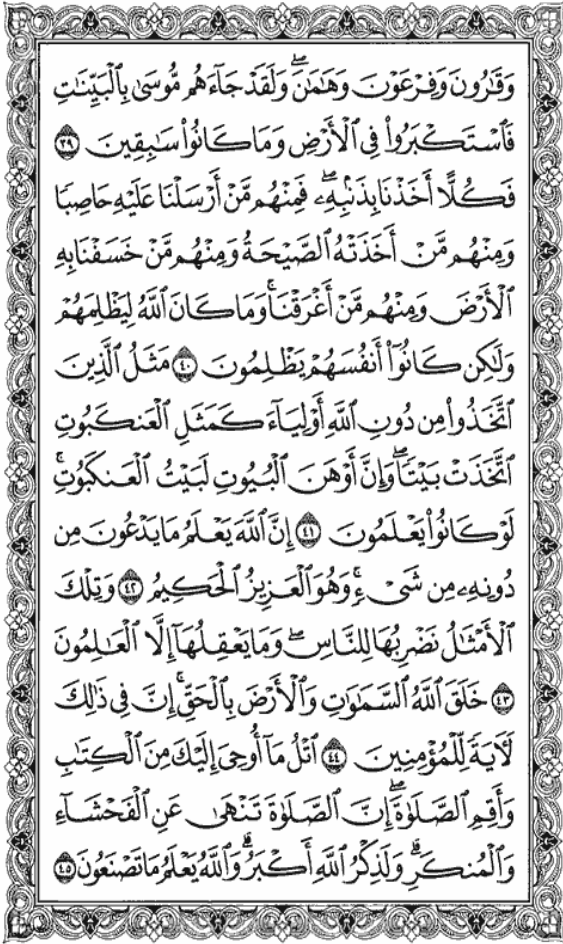 وَقَٰرُونَ وَفِرْعَوْنَ وَهَٰمَٰنَ ۖ وَلَقَدْ جَآءَهُم مُّوسَىٰ بِٱلْبَيِّنَٰتِ
فَٱسْتَكْبَرُوا۟ فِى ٱلْأَرْضِ وَمَا كَانُوا۟ سَٰبِقِينَ ٣٩
فَكُلًّا أَخَذْنَا بِذَنۢبِهِۦ ۖ فَمِنْهُم مَّنْ أَرْسَلْنَا عَلَيْهِ حَاصِبًا
وَمِنْهُم مَّنْ أَخَذَتْهُ ٱلصَّيْحَةُ وَمِنْهُم مَّنْ خَسَفْنَا بِهِ
ٱلْأَرْضَ وَمِنْهُم مَّنْ أَغْرَقْنَا ۚ وَمَا كَانَ ٱللَّهُ لِيَظْلِمَهُمْ
وَلَٰكِن كَانُوٓا۟ أَنفُسَهُمْ يَظْلِمُونَ ٤٠ مَثَلُ ٱلَّذِينَ
ٱتَّخَذُوا۟ مِن دُونِ ٱللَّهِ أَوْلِيَآءَ كَمَثَلِ ٱلْعَنكَبُوتِ
ٱتَّخَذَتْ بَيْتًا ۖ وَإِنَّ أَوْهَنَ ٱلْبُيُوتِ لَبَيْتُ ٱلْعَنكَبُوتِ ۚ
لَوْ كَانُوا۟ يَعْلَمُونَ ٤١ إِنَّ ٱللَّهَ يَعْلَمُ مَا يَدْعُونَ مِن
دُونِهِۦ مِن شَىْءٍ ۚ وَهُوَ ٱلْعَزِيزُ ٱلْحَكِيمُ ٤٢ وَتِلْكَ
ٱلْأَمْثَٰلُ نَضْرِبُهَا لِلنَّاسِ ۖ وَمَا يَعْقِلُهَآ إِلَّا ٱلْعَٰلِمُونَ
٤٣ خَلَقَ ٱللَّهُ ٱلسَّمَٰوَٰتِ وَٱلْأَرْضَ بِٱلْحَقِّ ۚ إِنَّ فِى ذَٰلِكَ
لَءَايَةً لِّلْمُؤْمِنِينَ ٤٤ ٱتْلُ مَآ أُوحِىَ إِلَيْكَ مِنَ ٱلْكِتَٰبِ
وَأَقِمِ ٱلصَّلَوٰةَ ۖ إِنَّ ٱلصَّلَوٰةَ تَنْهَىٰ عَنِ ٱلْفَحْشَآءِ
وَٱلْمُنكَرِ ۗ وَلَذِكْرُ ٱللَّهِ أَكْبَرُ ۗ وَٱللَّهُ يَعْلَمُ مَا تَصْنَعُونَ ٤٥